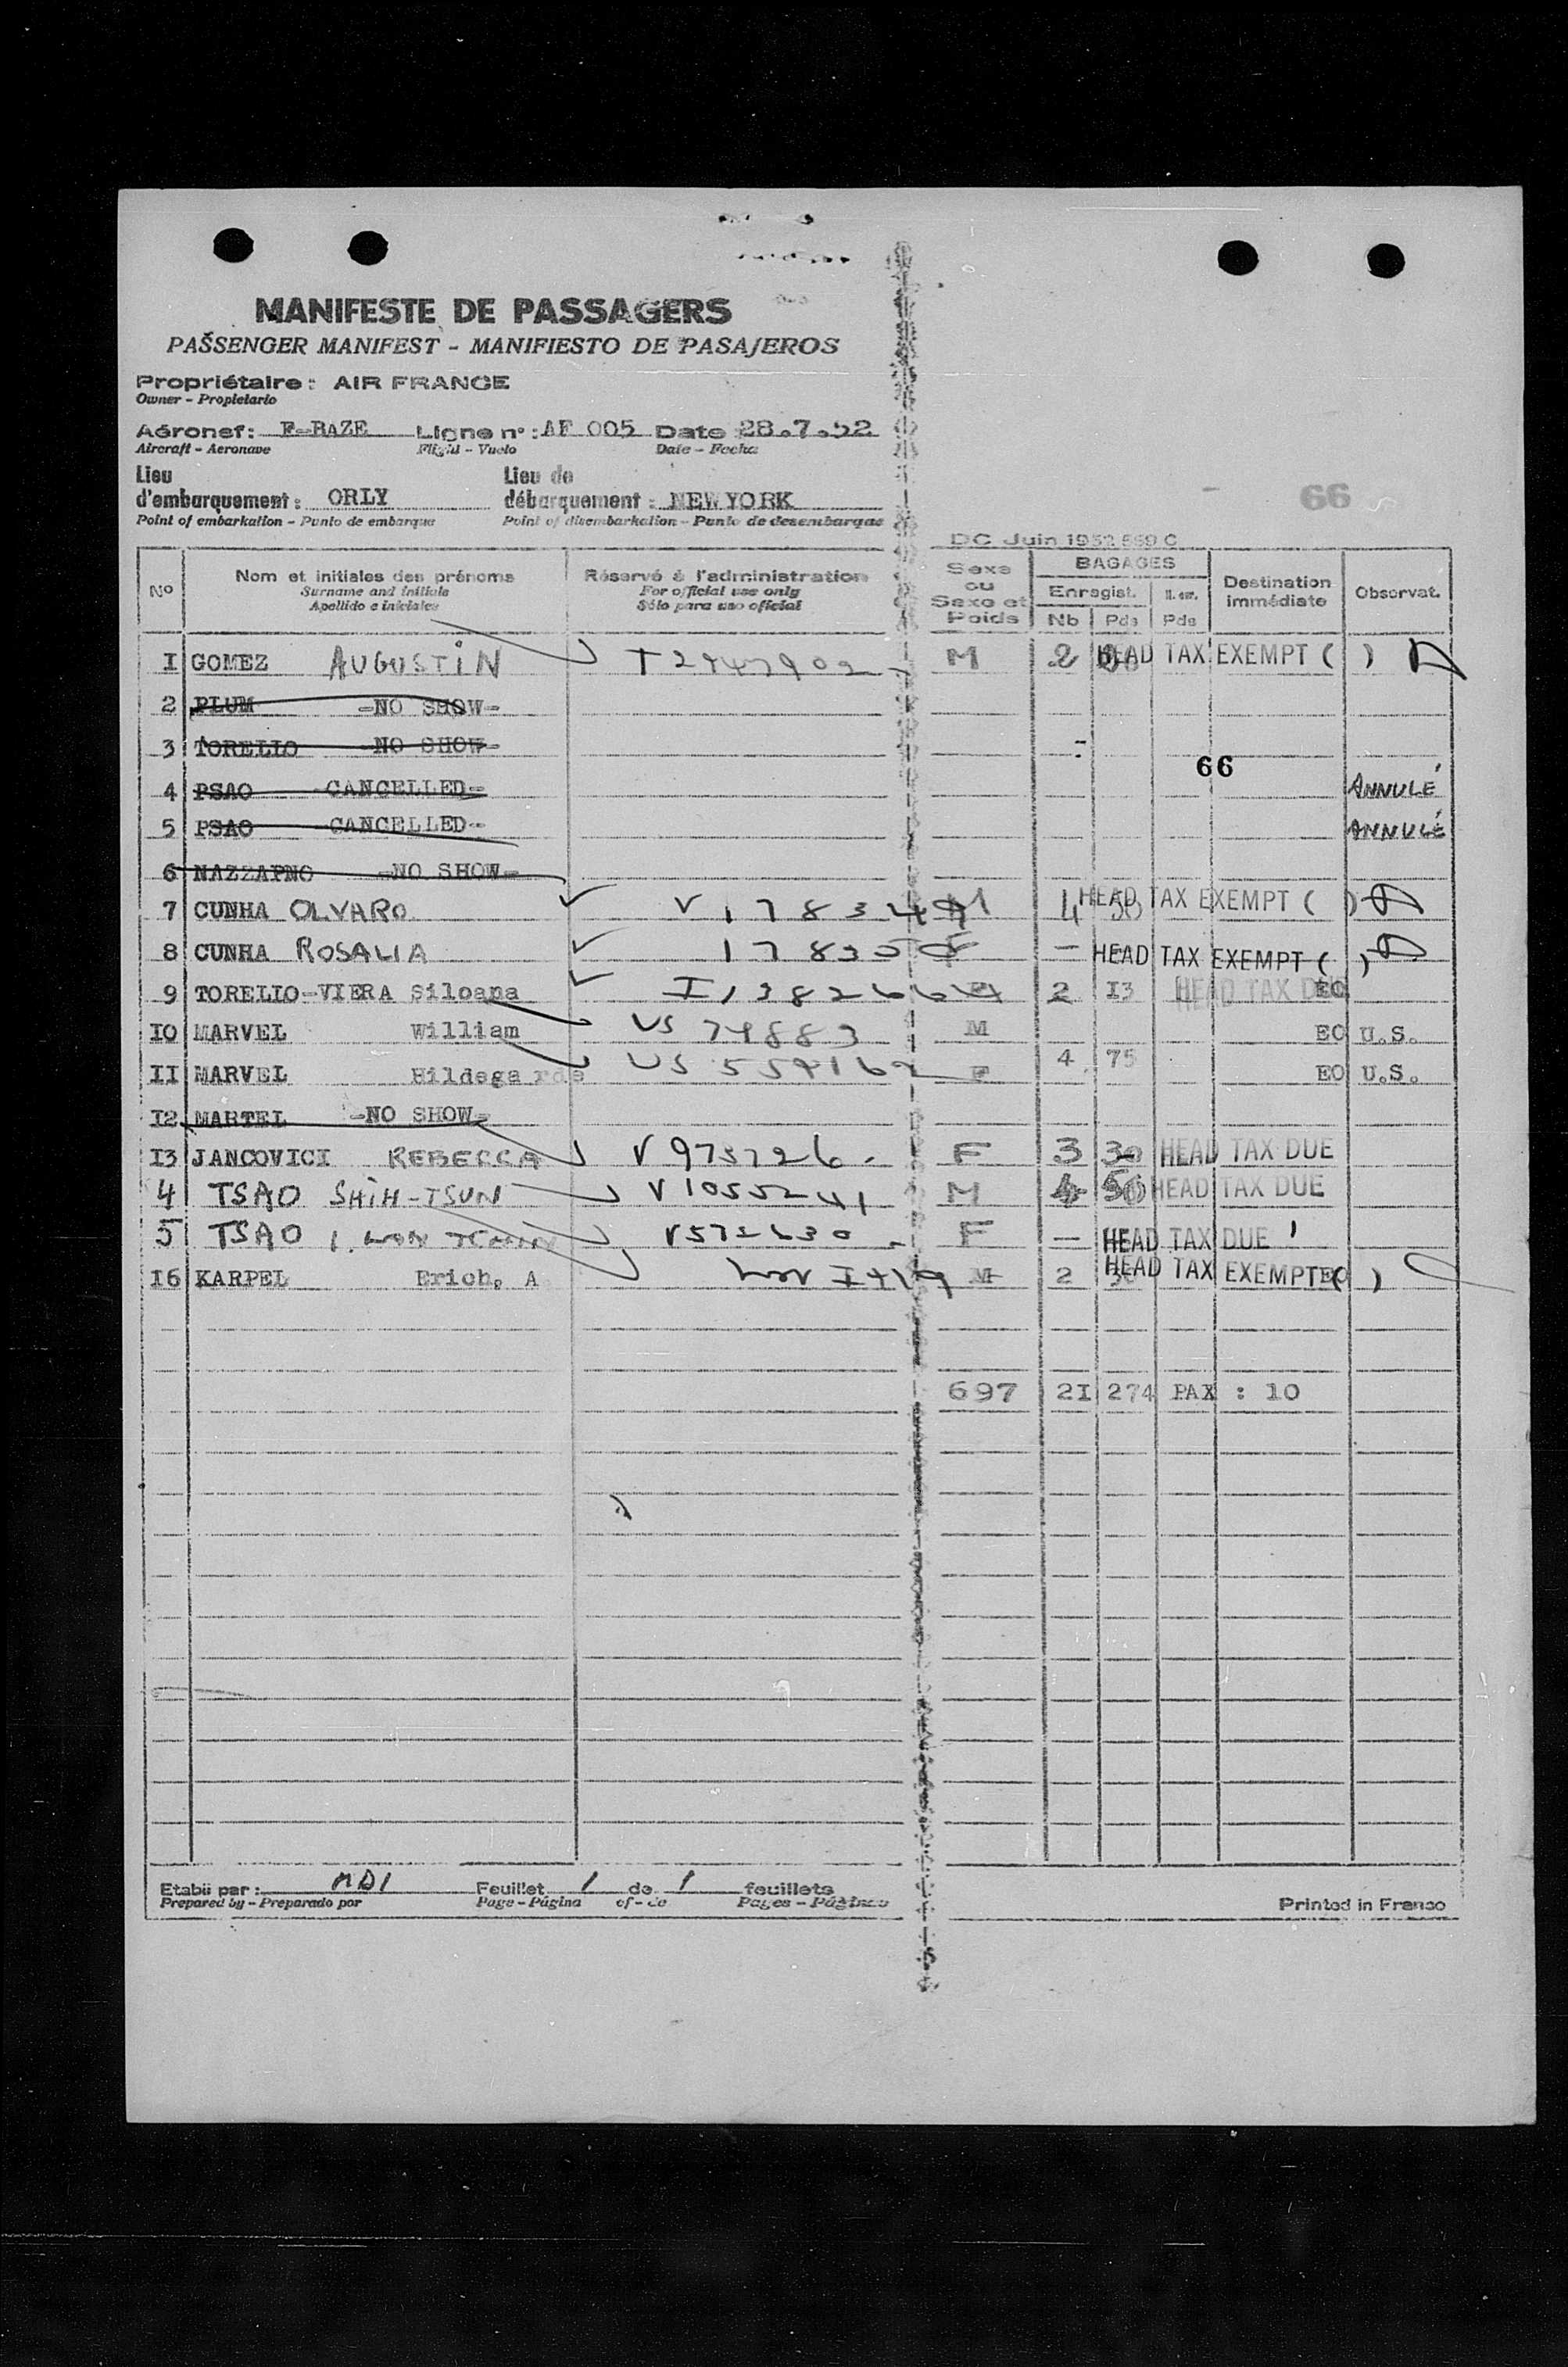 MANIFESTE DE PASSAGERS
PASSENGER MANIFEST - MANIFIESTO DE PASAJEROS
Propriétaire : AIR FRANCE
Owner - Propietario
Aéronef : F-BAZE Ligne n° : AF 005 Date 28.7.52
Aircraft - Aeronave Flight - Vuelo Date - Fecha
Lieu d'embarquement : ORLY Lieu de débarquement : NEW YORK
Point of embarkation - Punto de embarque Point of disembarkation - Punto de desembarque
66
DC Juin 1952 569 C
Nº Nom et initiales des prénoms Réservé à l'administration Sexe ou Sexe et Poids BAGAGES Destination immédiate Observat.
Surname and initials For official use only Enregist.
Apellido e iniciales Sólo para uso oficial Nb Pds Pds
I GOMEZ AUGUSTIN T2947902 M 2 HEAD TAX EXEMPT ( )
2 PLUM -NO SHOW-
3 TORELIO -NO SHOW-
66
4 PSAO -CANCELLED- ANNULÉ
5 PSAO -CANCELLED- ANNULÉ
6 NAZZAPNO -NO SHOW-
7 CUNHA OLVARO V 178349 M 4 HEAD TAX EXEMPT ( )
8 CUNHA ROSALIA 178350 F — HEAD TAX EXEMPT ( )
9 TORELIO-VIERA Siloana I 1382664 F 2 I3 HEAD TAX DUE EO
IO MARVEL William US 74883 M EO U.S.
4 75
II MARVEL Hildegarde US 559162 F EO U.S.
I2 MARTEL -NO SHOW-
I3 JANCOVICI REBECCA V 973726 F 3 30 HEAD TAX DUE
4 TSAO SHIH-TSUN V 1055241 M 4 50 HEAD TAX DUE
5 TSAO V572630 F — HEAD TAX DUE
I6 KARPEL Erich, A M 2 HEAD TAX EXEMPT ( ) EO
697 2I 274 PAX : 10
Etabli par : MDI Feuillet 1 de 1 feuillets
Prepared by - Preparado por Page - Página of - de Pages - Páginas
Printed in France